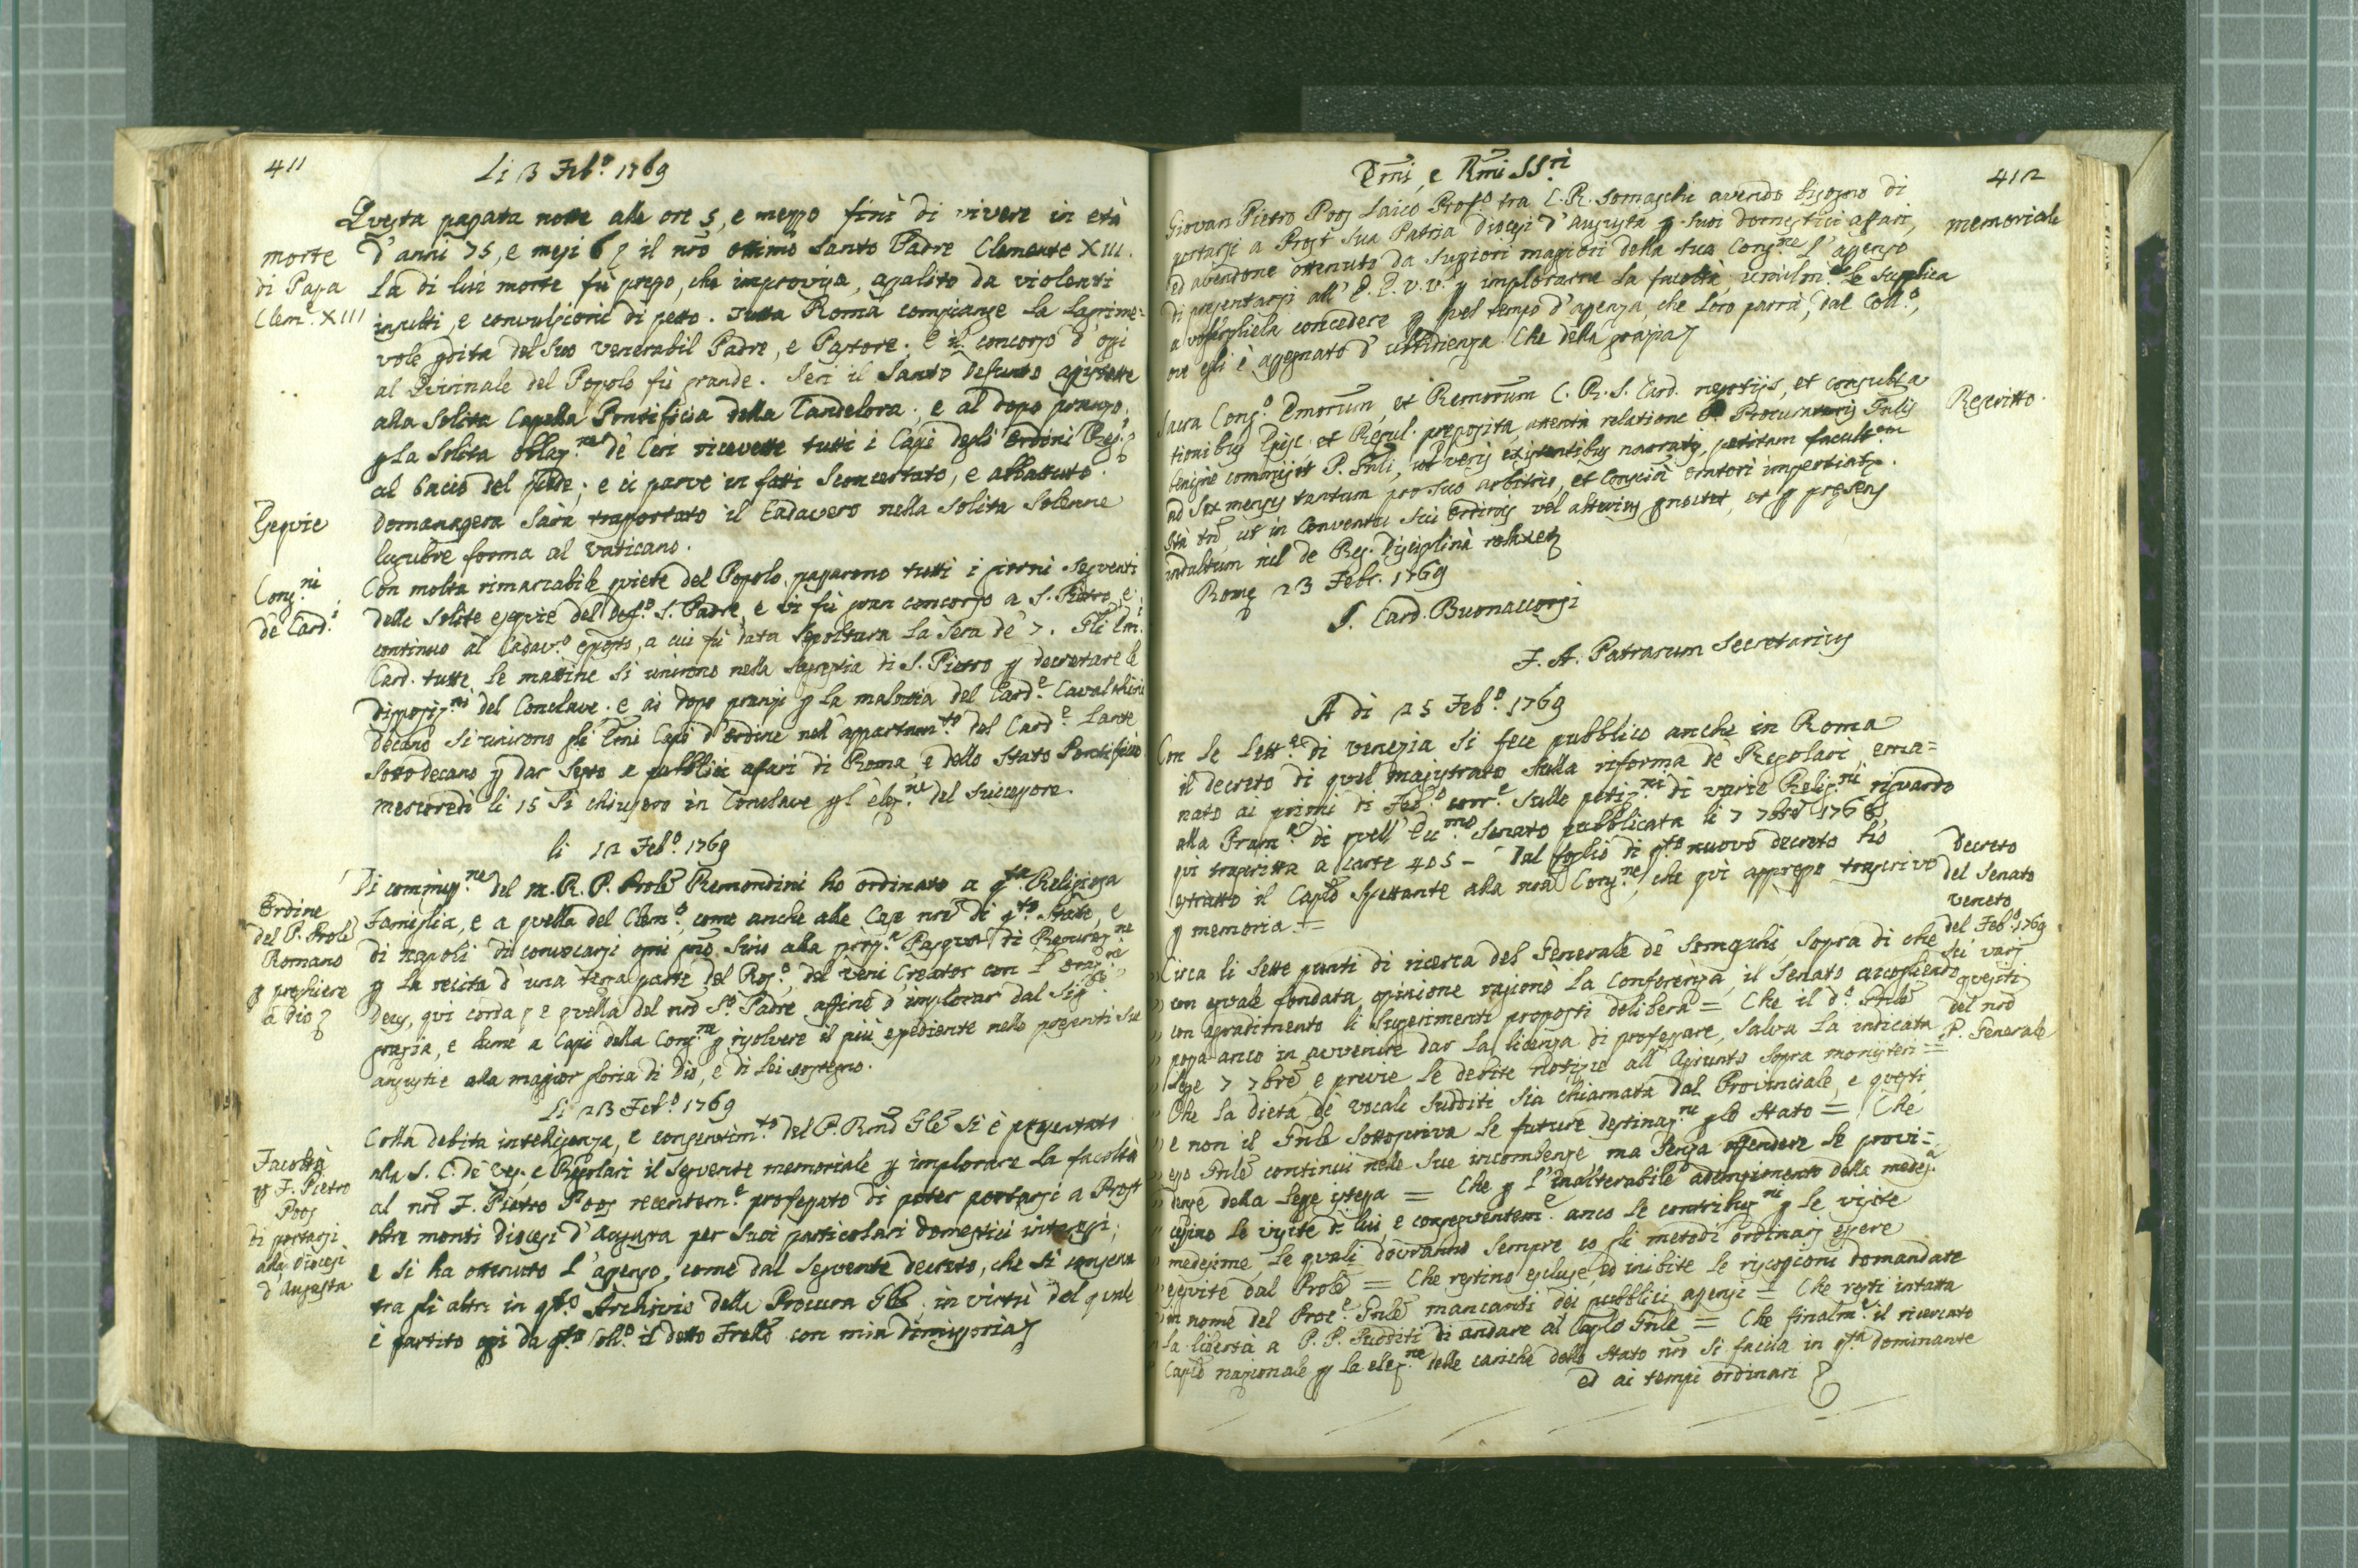 411
Li 3 Feb.o 1769
Questa passata notte alle ore 5, e mezzo finì di vivere in età
morte
di Papa
Clem.e XIII
d'anni 75, e mesi il nrō ottimo Santo Padre Clemente XIII.
La di lui morte fù presso, che improvisa, assalito da violenti
insulti, e convulsioni di petto. Tutta Roma compianse la lagrime=
vole pdita del Suo Venerabil Padre, e Pastore. e il concorso d'oggi
al Quirinale del Popolo fù grande. Jeri il Santo Defunto assistette
alla Solita Capella Pontificia della Candelora; e al dopo pranzo
p la Solita oblaz.ne de Ceri ricevette tutti i Capi degli Ordini Reg.i
al bacio del piede; e ci parve in fatti Sconcertato, e abbattuto.
Esequie
domanassera Sarà trasportato il Cadavero nella Solita Solenne
lugubre forma al Vaticano.
Cong.ni
de Card.i
Con molta rimarcabile quiete del Popolo passarono tutti i giorni Seguenti
delle Solite esequie del Def.o S. Padre, e vi fù gran concorso a S. Pietro, e
continuo al Cadav.o esposto, a cui fù data Sepoltura la Sera de' 7. Gli Emi
Card. tutte le mattine Si unirono nella Sagrestia di S. Pietro p decretare le
Disposiz.ni del Conclave. e ai dopo pranzi p la malattia del Card.e Cavalchini
Decano Si unirono gli Emi Capi d'Ordine nell'appartam.to del Card.e Lante
Sotto decano p dar Sesto a pubblici affari di Roma, e dello Stato Pontificio
mercoredì li 15 Si chiusero in Conclave p l'elez.ne del Successore.
li 12 Feb.o 1769
Ordine
del P. Prole
Romano
p preghiere
a Dio
Di commiss.ne del M. R. P. Prolē Remondini ho ordinato a q.ta Religiosa
Famiglia, e a quella del Clem.o come anche alle Case nrē di q.to Stato, e
di Napoli di convocarsi ogni Sino alla pross.a Pasqua di Resurez.ne
p la recita d'una terza parte del Ros.o, del Veni Creator con l'Oraz.ne
Deus, qui corda e quella del nrō S.o Padre affine d'implorar dal Sig.re
grazia, e lume a Capi della Cong.ne p risolvere il più espediente nelle presenti Sue
angustie alla maggior gloria di Dio, e di lei sostegno.
Li 23 Feb.o 1769
Facoltà
p F. Pietro
Poos
di portarsi
alla Diocesi
d'Augusta
Colla debita intelligenza, e consentim.to del P. Rmō Glē Si è presentato
alla S. C. de' Ves. e Regolari il Seguente memoriale p implorare la facoltà
al nrō F. Pietro Poos recentem.e professato di poter portarsi a Prost
oltre monti Diocesi d'Augusta per Suoi particolari domestici interessi;
e si ha ottenuto l'assenso, come dal Seguente decreto, che Si conserva
tra gli altri in q.to Archivio della Procura Glē; in virtù del quale
è partito oggi da q.to Coll.o il detto Frello con mia dimissoria
412
Emi, e Rmi SS.ri
memoriale
Giovan Pietro Poos Laico Prof.o tra C. R. Somaschi avendo bisogno di
portarsi a Prost Sua Patria Diocesi d'Augusta p Suoi domestici affari,
ed avendone ottenuto da Supiori maggiori della Sua Cong.ne l'assenso
di presentarsi all'E. E. V. V. p implorarne la facoltà, umilm.e Le Supplica
a vogliela concedere p quel tempo d'assenza, che loro parrà, dal Coll.o,
ove egli è assegnato d'ubbidienza. Che della grazia
Rescritto.
Sacra Cong.o Emorum, et Rmorum C. R. S. Card. negotiis, et consulta
tionibus Episc. et Regul. preposita, attenta relatione P. Procuratoris Gnlis
benigne commisit P. Gnli, ut veris existentibus narratis, petitam facult.em
ad Sex menses tantum pro Suo arbitrio, et Conscia Oratori impertiat.
Ita tn, ut in Conventu Sui Ordinis vel alterius pnoctet, et p presens
indultum nil de Reg. Disciplina relaxet
Rome 23 Febr. 1769
J. Card. Buonaccorsi
F. A. Patrarum Secretarius
A di 25 Feb.o 1769
Decreto
del Senato
Veneto
del Feb.o 1769
Sui varj
quesiti
del nrō
P. Generale
Con le Lett.e di Venezia Si fece pubblico anche in Roma
il decreto di quel magistrato Sulla riforma de' Regolari, ema=
nato ai primi di Feb.o corr.e Sulle petiz.ni di varie Relig.ni riguardo
alla Pram.a di quell'Ecc.mo Senato pubblicata li 7 7bre 1768
qui trascritta a carte 405 - Dal foglio di q.to nuovo decreto hò
estratto il Caplō Spettante alla nrā Cong.ne, che quì appresso trascrivo
p memoria =
Circa li Sette punti di ricerca del Generale de' Somaschi, Sopra di che
con eguale fondata opinione ragionò la Conferenza, il Senato accogliendo
con agradimento li Sugerimenti proposti delibera = Che il d.o Gnlē
possa anco in avvenire dar la licenza di professare, Salva la indicata
Lege 7 7bre e previe le debite notizie all'Agiunto Sopra monisteri =
Che la dieta de' Vocali Sudditi Sia chiamata dal Provinciale, e questi,
e non il Gnlē Sottoscriva le future destinaz.ni p lo Stato = Che
esso Gnlē continui nelle Sue incombenze ma Senza offendere le provi=
denze della Lege istessa = Che p l'inalterabile adempimento della medes.a
cessino le visite di lui, e conseguentem.e anco le contribuz.ni p le visite
medesime, le quali dovranno Sempre co gli metodi ordinarj essere
eseguite dal Prolē = Che restino escluse, ed inibite le riscossioni domandate
in nome del Proc.e Gnlē mancanti dei pubblici assensi = Che resti intatta
la libertà a P. P. Sudditi di andare al Caplō Gnlē = Che finalm.e il ricercato
Caplō nazionale p la elez.ne delle cariche dello Stato nrō Si faccia in q.ta dominante
ed ai tempi ordinari